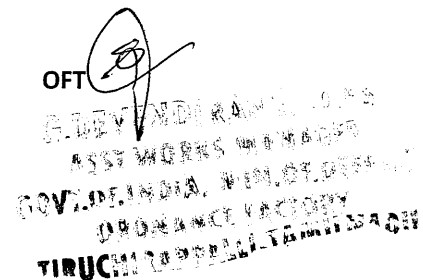 OFT
G.DEVENDIRAN
ASST WORKS MANAGER
GOVT.OF.INDIA, MIN.OF.DEFENCE
ORDNANCE FACTORY
TIRUCHIRAPPALLI-TAMILNADU